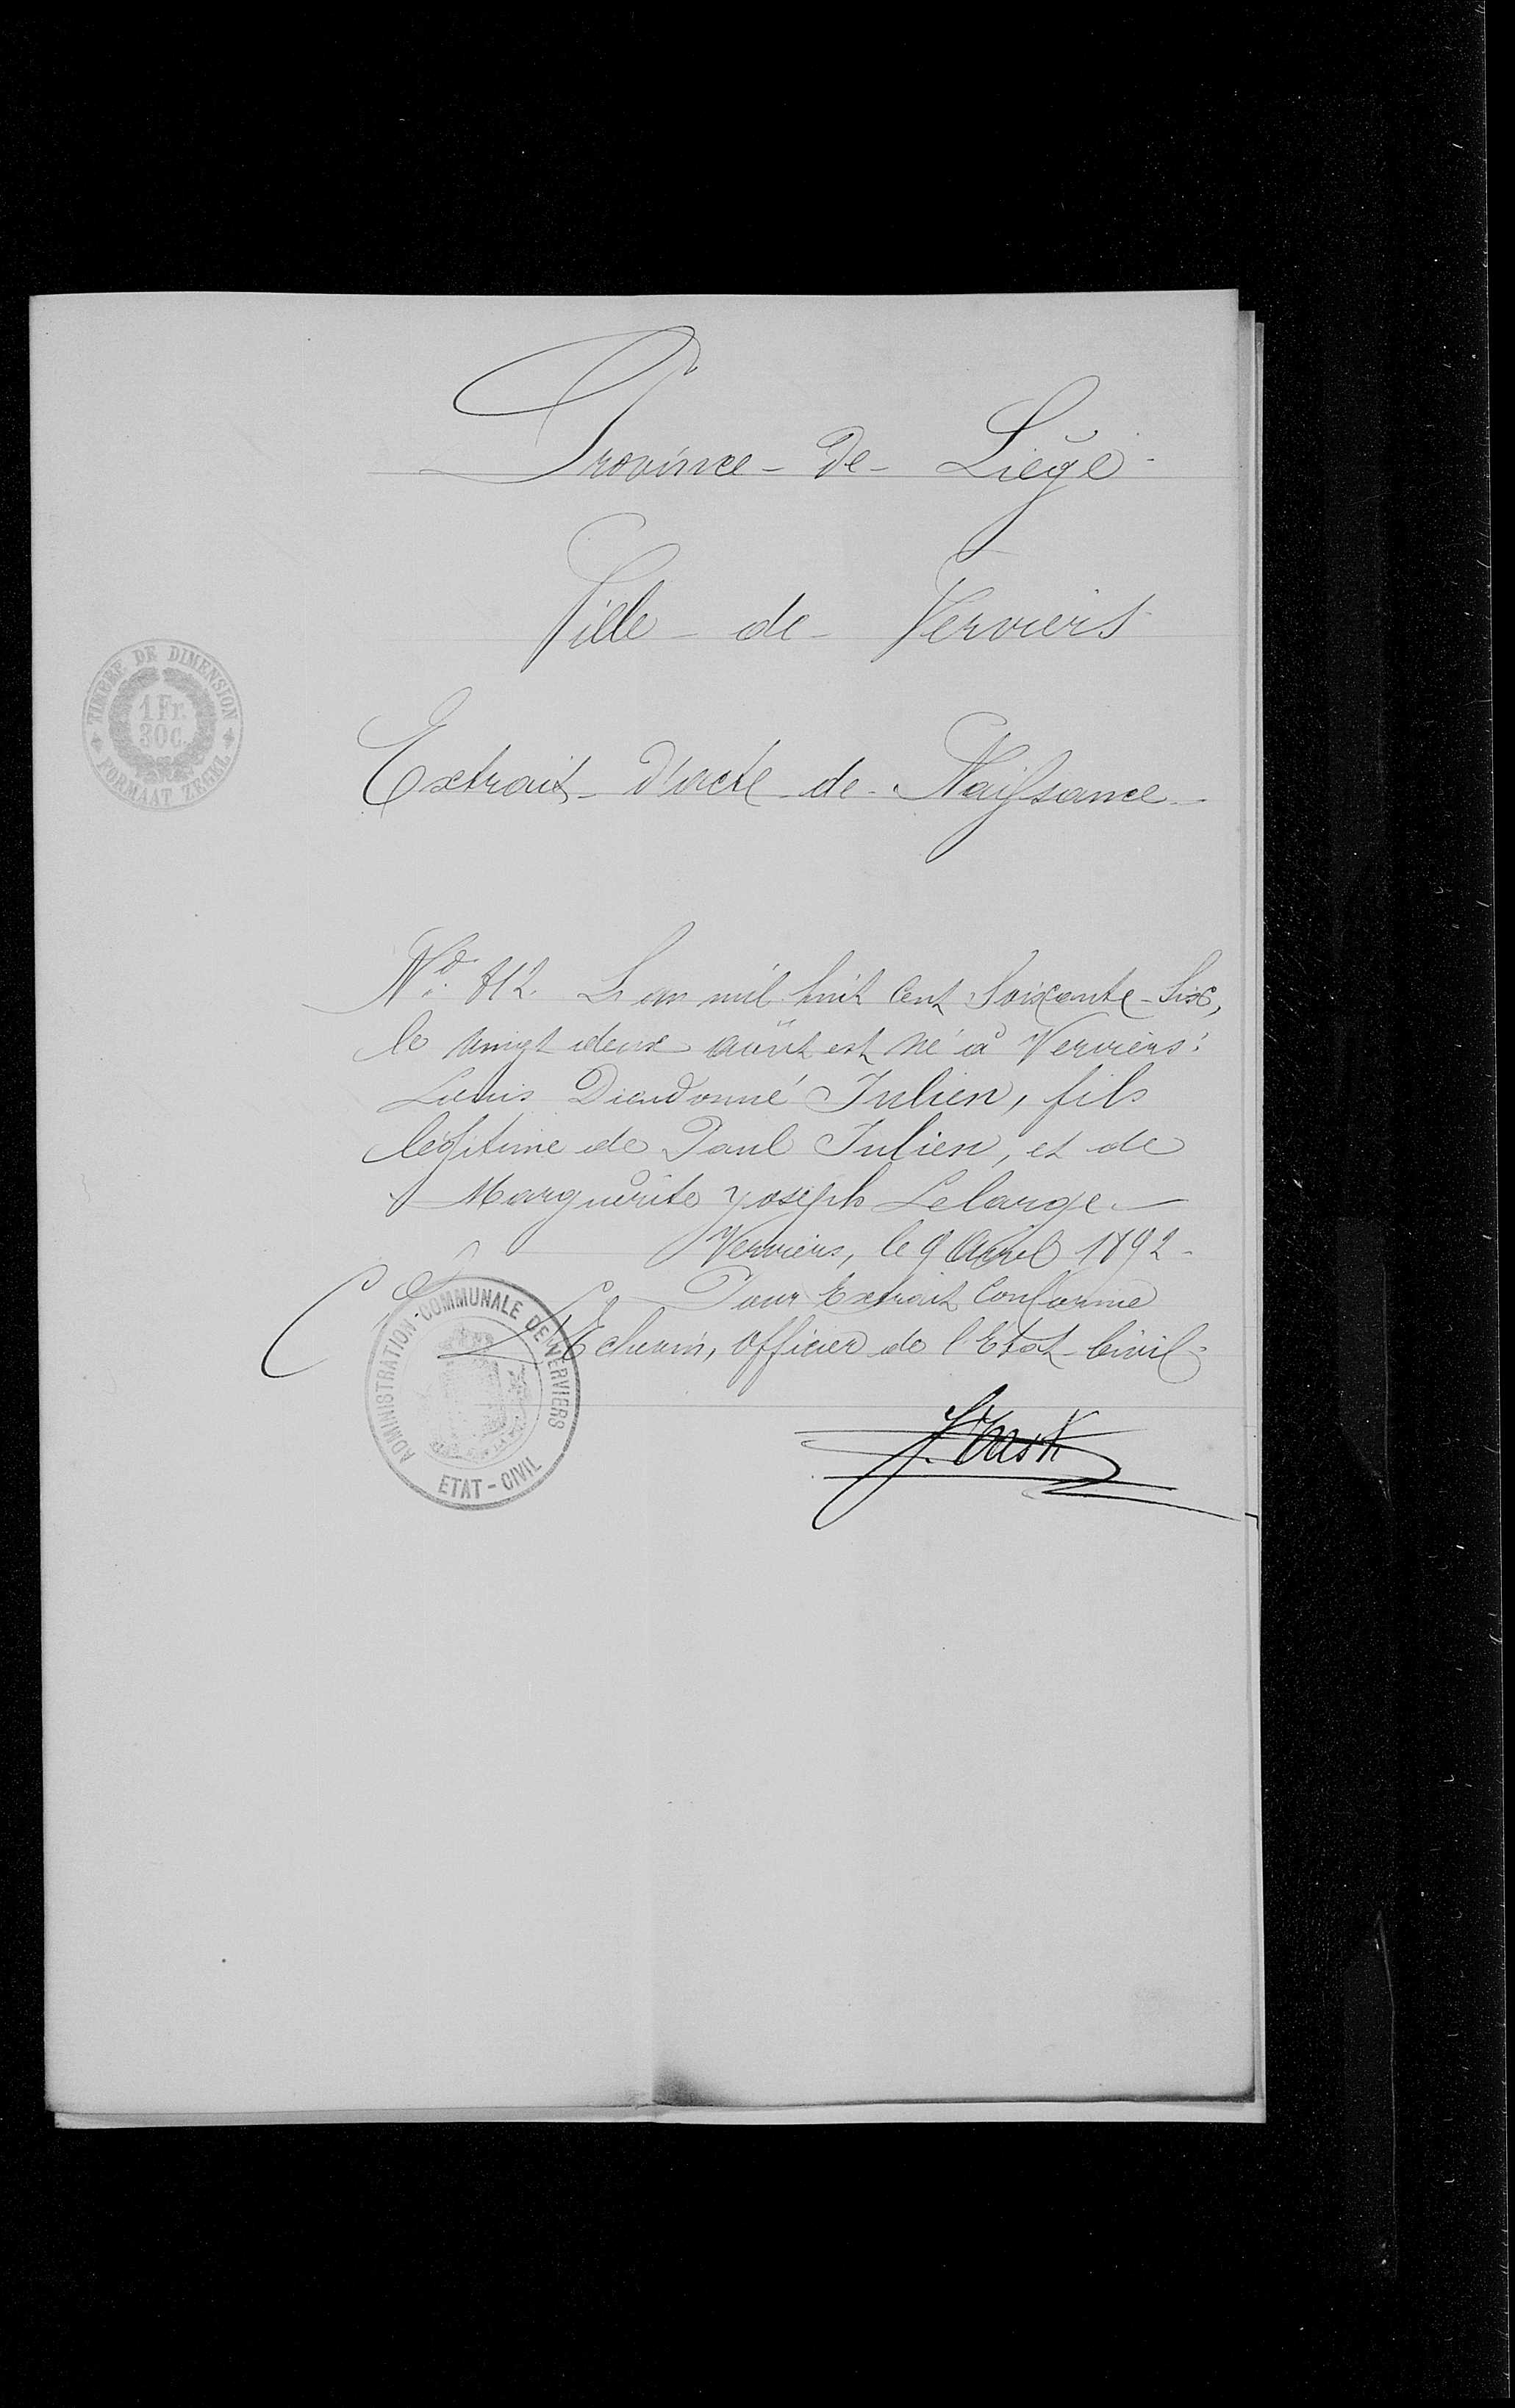 Province - de - Liège
Ville - de - Verviers
TIMBRE DE DIMENSION
1 Fr.
30 C.
FORMAAT ZEGEL
Extrait d'acte de Naissance
N° 812. L'an mil huit cent soixante-six,
le vingt deux août est né à Verviers:
Louis Dieudonné Julien, fils
légitime de Paul Julien, et de
Marguerite Joseph Lelarge.
Verviers, le 9 Avril 1892
Pour Extrait Conforme
L'Echevin, officier de l'Etat-Civil
ADMINISTRATION-COMMUNALE DE VERVIERS
ETAT-CIVIL